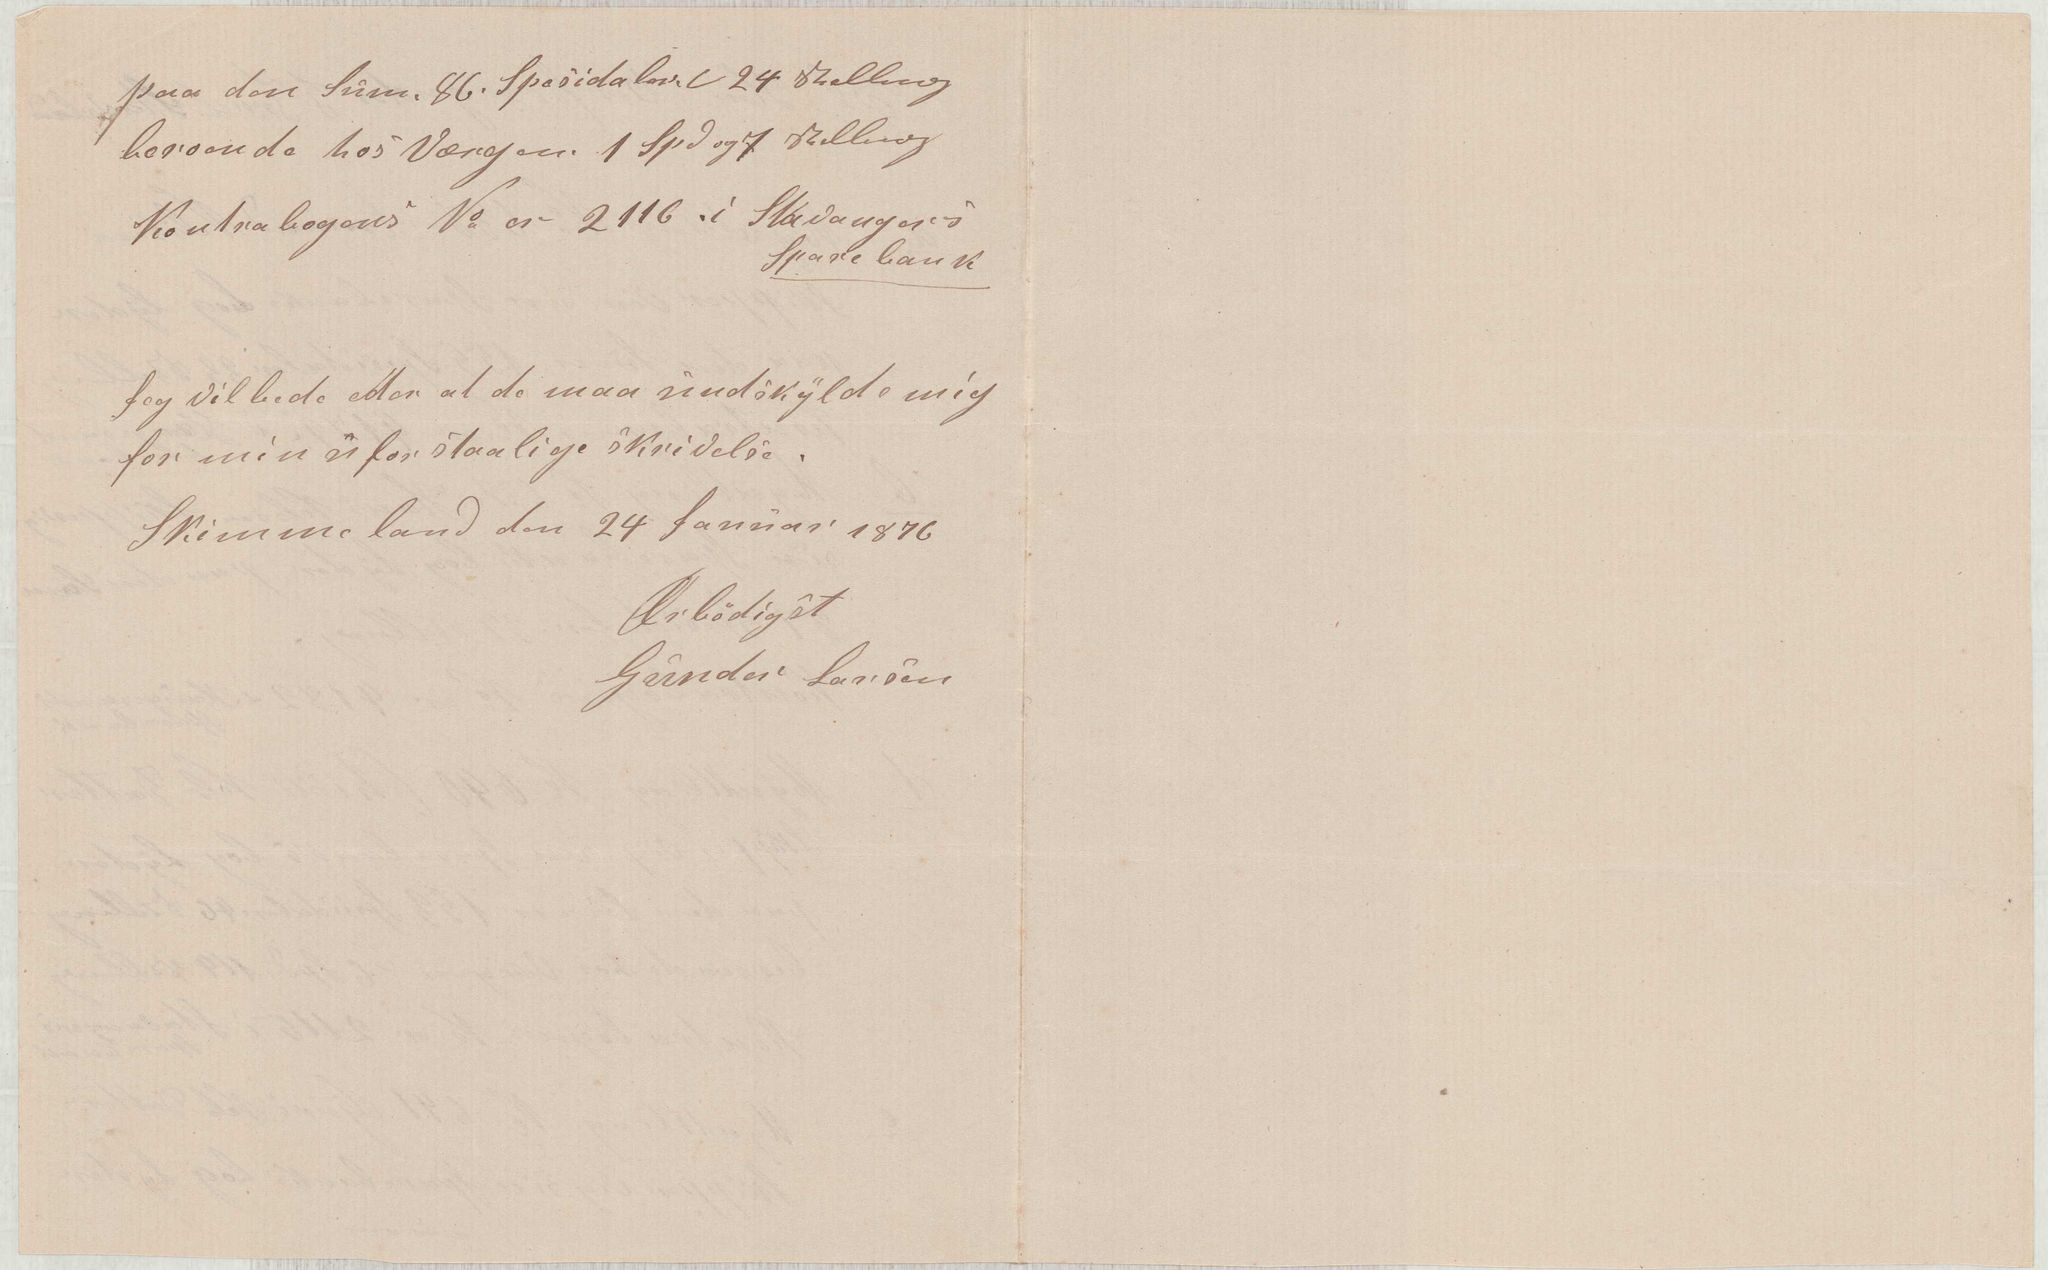 paa den Sum. 86. Spesidaler. 24 Skelling
beroende hos Værgen. 1 Spd og 7 Skelling
Kontrabogens No er 2116 . i Stavangers
Sparebank
Jeg vil bede etter at de maa undskylde mig
for min uforstaalige skrivelse.
Skimmeland den 24 Januar 1876
Ærbödigst
Gunder Larsen